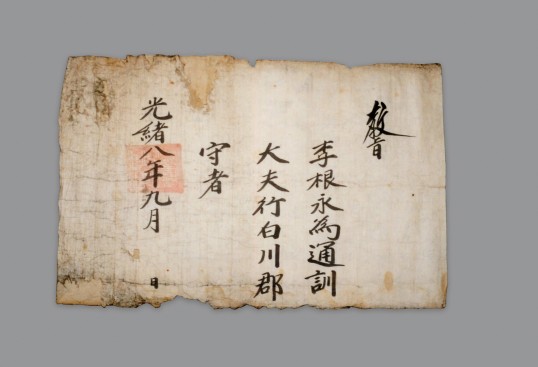 敎旨
李根永爲通訓
大夫行白川郡
守者
光緖八年九月 日